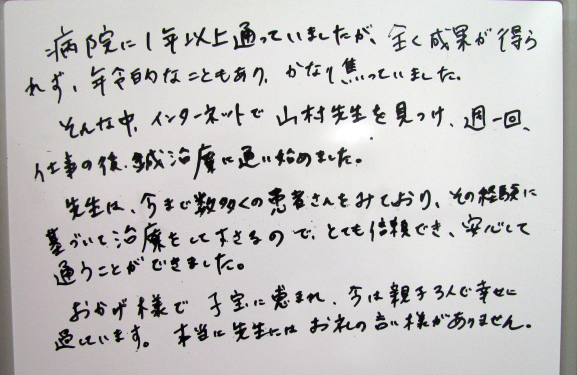 病院に1年以上通っていましたが、全く成果が得ら
れず、年令的なこともあり、かなり焦っていました。
そんな中、インターネットで山村先生を見つけ、週一回、
仕事の後、鍼治療に通い始めました。
先生は、今まで数多くの患者さんをみており、その経験に
基づいて治療をして下さるので、とても信頼でき、安心して
通うことができました。
おかげ様で子宝に恵まれ、今は親子3人で幸せに
過しています。本当に先生にはお礼の言い様がありません。